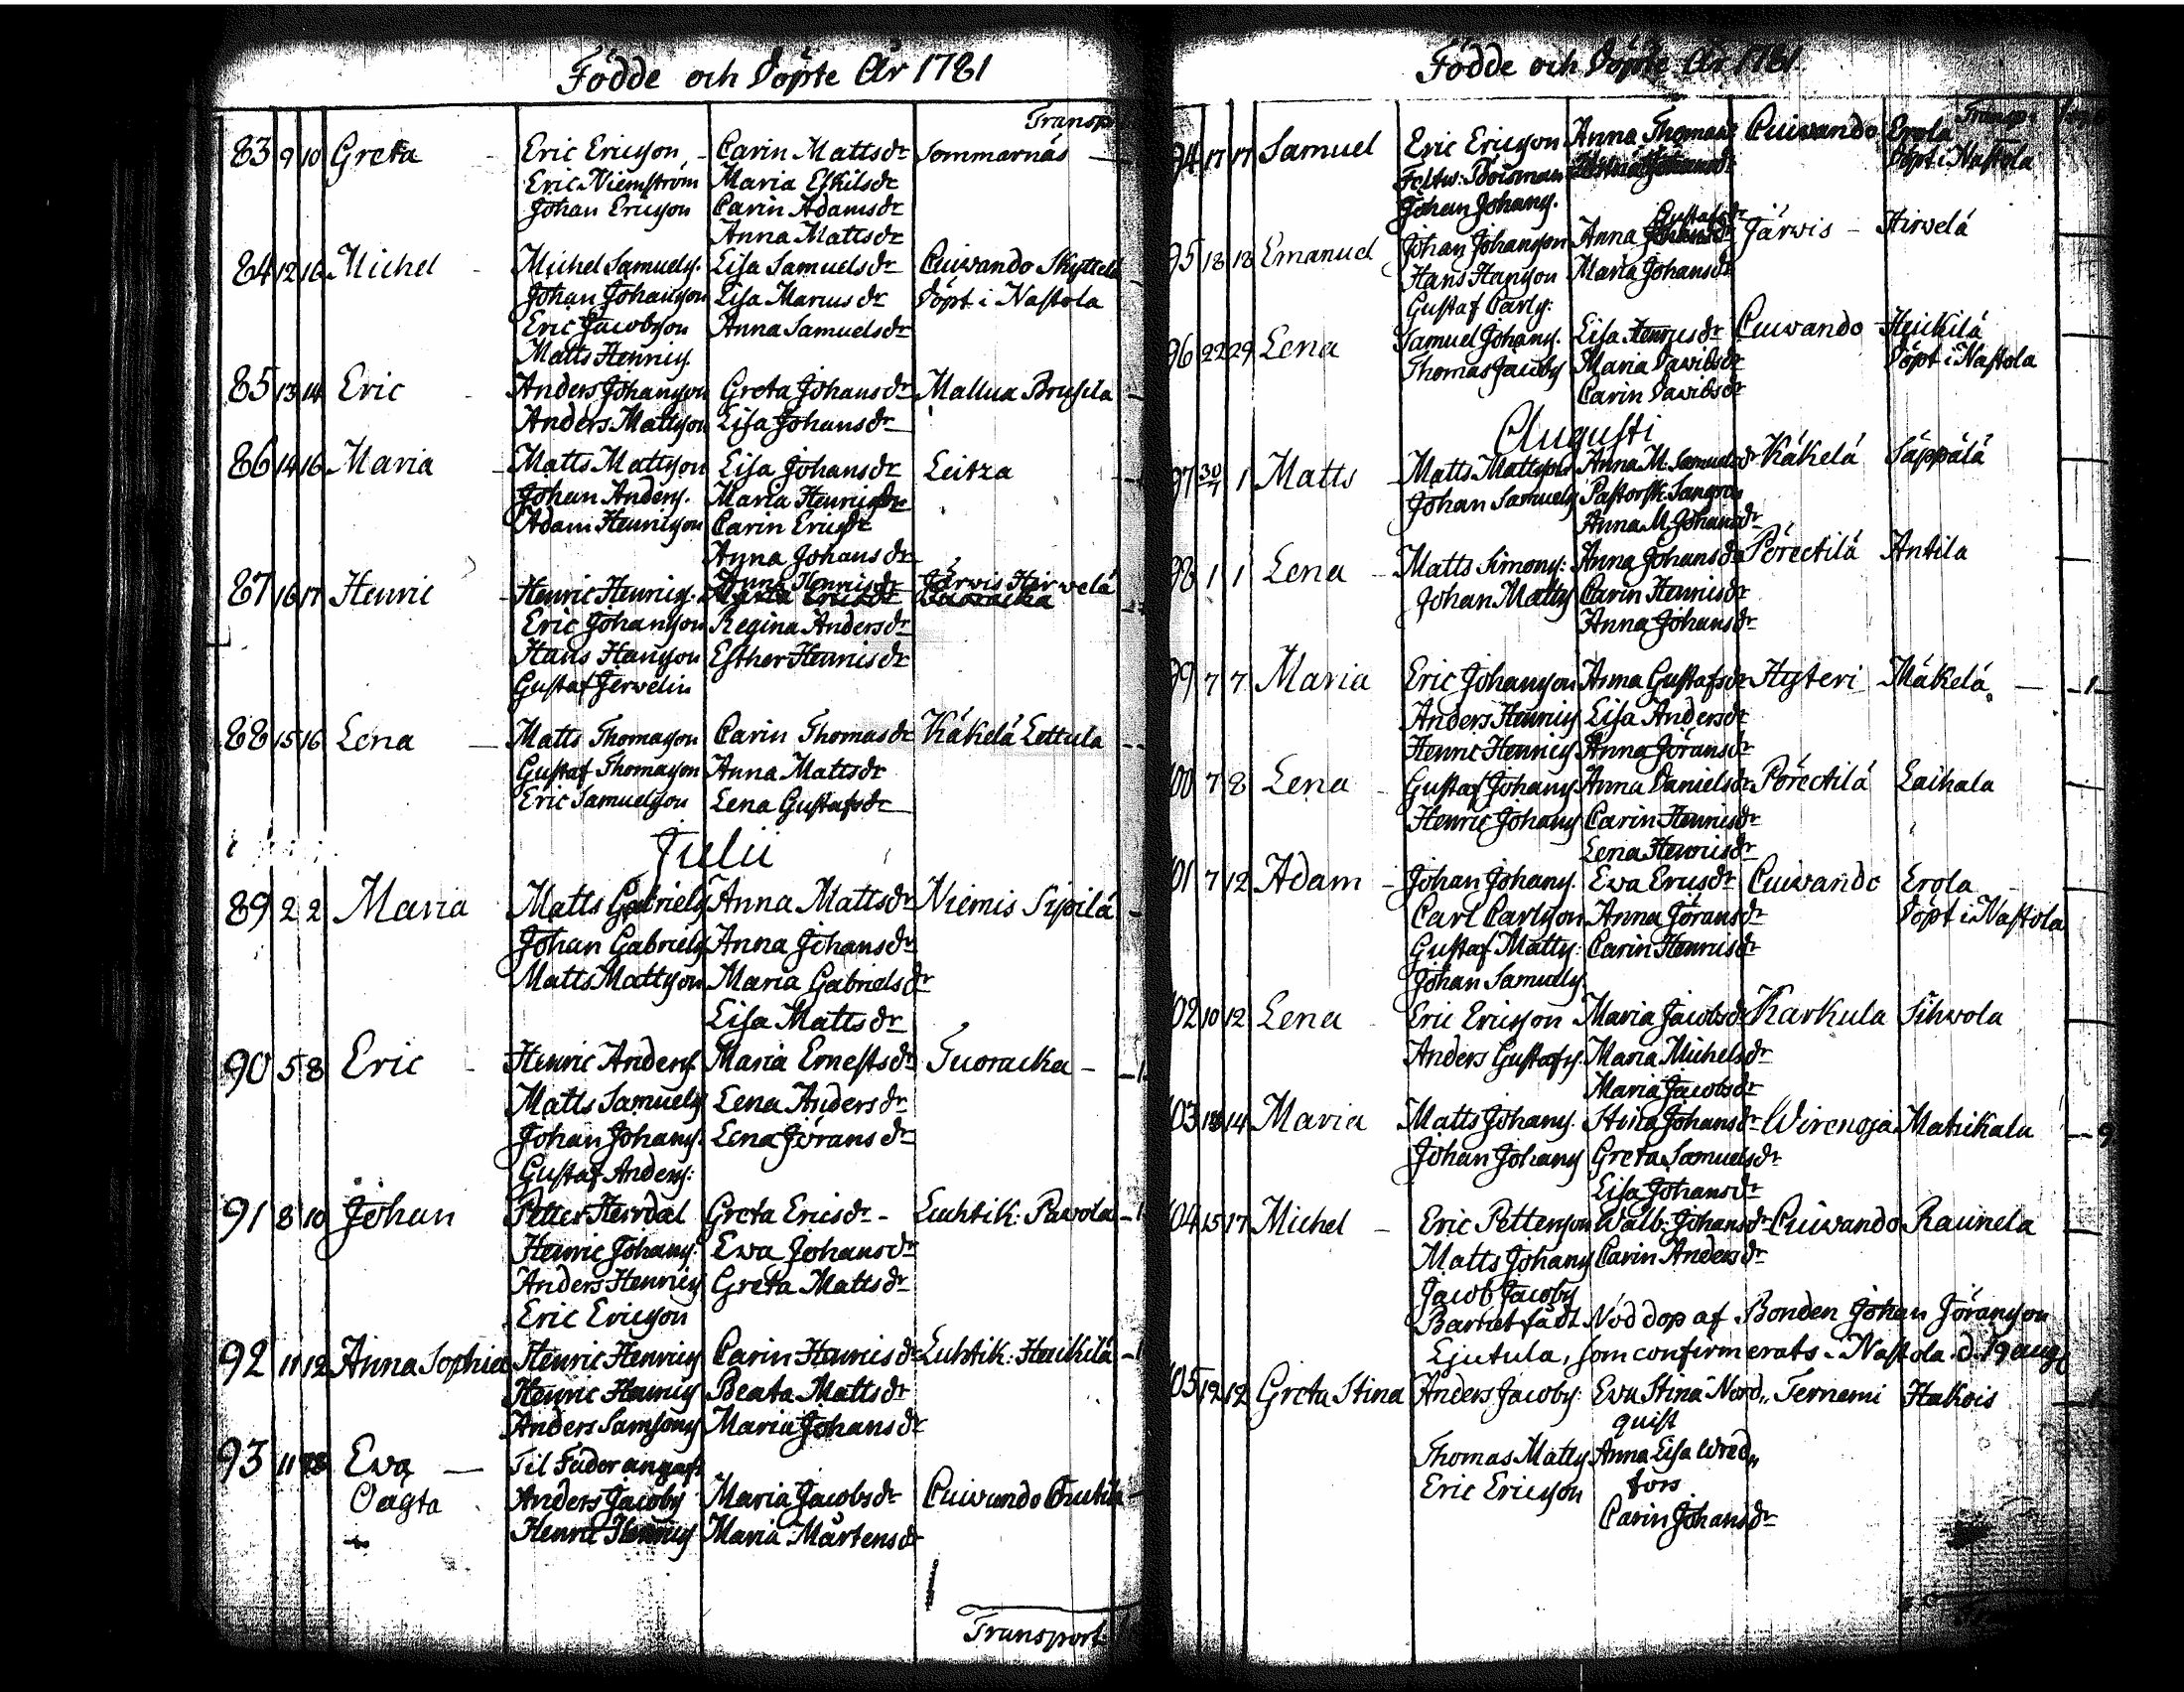 Födde och Döpte År 1781
Transp
83 9 10 Greta Eric Ericsson Carin Mattsdr Sommarnäs
Eric Niemström Maria Eskilsdr
Johan Ericsson Carin Adamsdr
Anna Mattsdr
84 12 16 Michel Michel Samuels. Lisa Samuelsdr Cuivando Skyttelä
Johan Johansson Lisa Mariusdr Döpt i Nastola
Eric Jacobsson Anna Samuelsdr
Matts Henrics.
85 13 14 Eric Anders Johansson Greta Johansdr Mallua
Anders Mattsson Lisa Johansdr
86 14 16 Maria Matts Mattsson Lisa Johansdr Leitza
Johan Anders. Maria Henricsdr
Adam Henricsson Carin Ericsdr
Anna Johansdr
87 16 17 Henric Henric Henrics. Anna Henricsdr Järvis Hirvelä
Eric Johansson Regina Andersdr
Hans Hansson Esther Henricsdr
Gustaf Jervelin
88 15 16 Lena Matts Thomasson Carin Thomasdr Käkelä Lettula
Gustaf Thomasson Anna Mattsdr
Eric Samuelsson Lena Gustafsdr
Julii
89 2 2 Maria Matts Gabriels Anna Mattsdr Niemis Sipilä
Johan Gabriels Anna Johansdr
Matts Mattsson Maria Gabrielsdr
Lisa Mattsdr
90 5 8 Eric Henric Anders Maria Ernestsdr Tuoracka 1
Matts Samuels Lena Andersdr
Johan Johans. Lena Jöransdr
Gustaf Anders:
91 8 10 Johan Petter Herrdal Greta Ericsdr Luhtik: Pavola 1
Henric Johans. Ewa Johansdr
Anders Henrics Greta Mattsdr
Eric Ericsson
92 11 12 Anna Sophia Henric Henrics Carin Henricsdr Luhtik: Heikilä 1
Henric Henrics Beata Mattsdr
Anders Samsons Maria Johansdr
93 11 Ewa Til Fader angafs
Oägta Anders Jacobs Maria Jacobsdr Cuivando
Henric Henrics Maria Mårtensdr
Transport
Födde och Döpte År 1781
Transp:
94 17 17 Samuel Eric Ericsson Anna Thomasdr Cuivando Erola
Feltw: Boisman Döpt i Nastola
Johan Johans.
Gustafsdr
95 18 18 Emanuel Johan Johansson Anna Järvis Hirvelä
Hans Hansson Maria Johansdr
Gustaf Carls:
96 22 29 Lena Samuel Johans. Lisa Henricsdr Cuivando Heikilä
Thomas Jacobs Maria Davidsdr Döpt i Nastola
Carin Davidsdr
Augusti
97 30/7 1 Matts Matts Mattsson Anna M. Samuelsdr Käkelä Säppälä
Johan Samuels Pastorsk:
Anna M. Johansdr
98 1 1 Lena Matts Simons: Anna Johansdr Pörectilä Antila
Johan Matts Carin Henricsdr
Anna Johansdr
99 7 7 Maria Eric Johansson Anna Gustafsdr Hyteri Mäkelä 1
Anders Henrics Lisa Andersdr
Henric Henrics Anna Jöransdr
100 7 8 Lena Gustaf Johans Anna Danielsdr Pörectilä Laikala
Henric Johans Carin Henricsdr
Lena Henricsdr
101 7 12 Adam Johan Johans. Ewa Ericsdr Cuivando Erola
Carl Carlsson Anna Jöransdr Döpt i Nastola
Gustaf Matts: Carin Henricsdr
Johan Samuels.
102 10 12 Lena Eric Ericsson Maria Jacobsdr Karkula Sihvola
Anders Gustafs. Maria Michelsdr
Maria Jacobsdr
103 13 14 Maria Matts Johans. Stina Johansdr Wirenoja Matikala
Johan Johans Greta Samuelsdr
Lisa Johansdr
104 15 17 Michel Eric Pettersson Walb: Johansdr Cuivando Raunela
Matts Johans Carin Andersdr
Jacob Jacobs
Barnet fådt Nöddop af Bonden Johan Jöransson
Ejutula, som confirmerats i Nastola d. 19 aug
105 12 12 Greta Stina Anders Jacobs. Ewa Stina Nord„ Ternemi Hakois
quist
Thomas Matts Anna Lisa Wred„
Eric Ericsson fors
Carin Johansdr